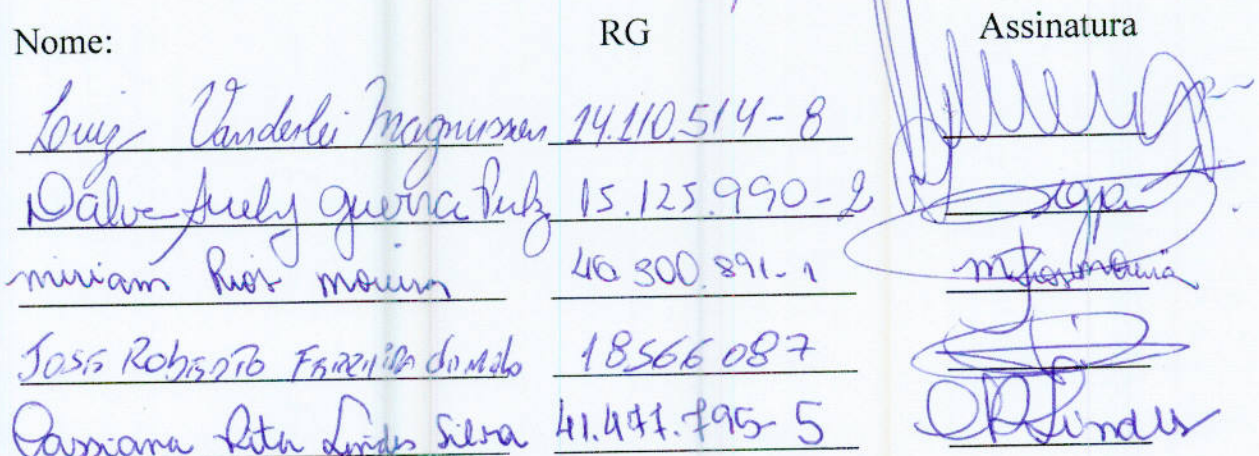 Nome: RG Assinatura
Luiz Vanderlei Magnussen 14.110.514-8
Dalve Suely Guerra 15.125.990-2
miriam Rios moreira 40.300.891-1
José Roberto Ferreira 18566087
Cassiana Rita Lindes Silva 41.477.795-5 CRLindes